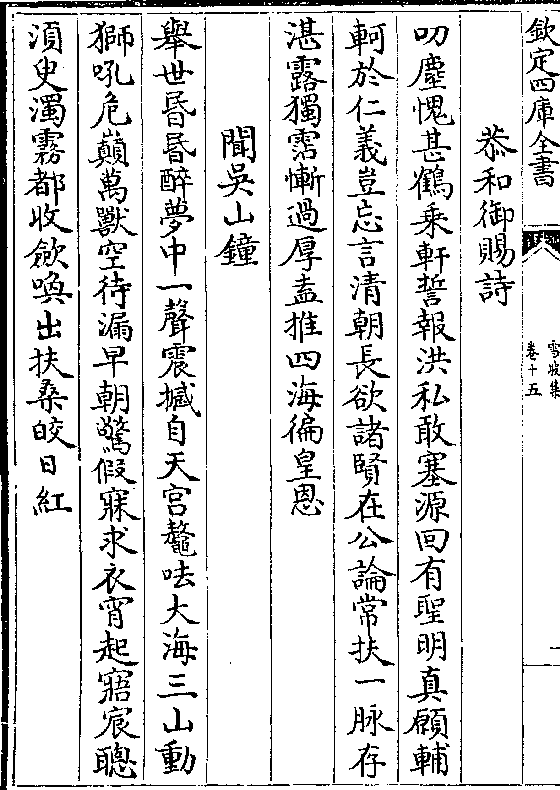 欽定四庫全書
雪坡集
卷十五
恭和御賜詩
叨塵愧甚鶴乘軒誓報洪私敢塞源回有聖明真願輔
軻於仁義豈忘言清朝長欲諸賢在公論常扶一脉存
湛露獨霑慚過厚盍推四海徧皇恩
聞吳山鐘
舉世昏昏醉夢中一聲震撼自天宮鼇呿大海三山動
獅吼危巔萬獸空待漏早朝驚假寐求衣宵起寤宸聰
湏臾濁霧都收斂喚出扶桑皎日紅